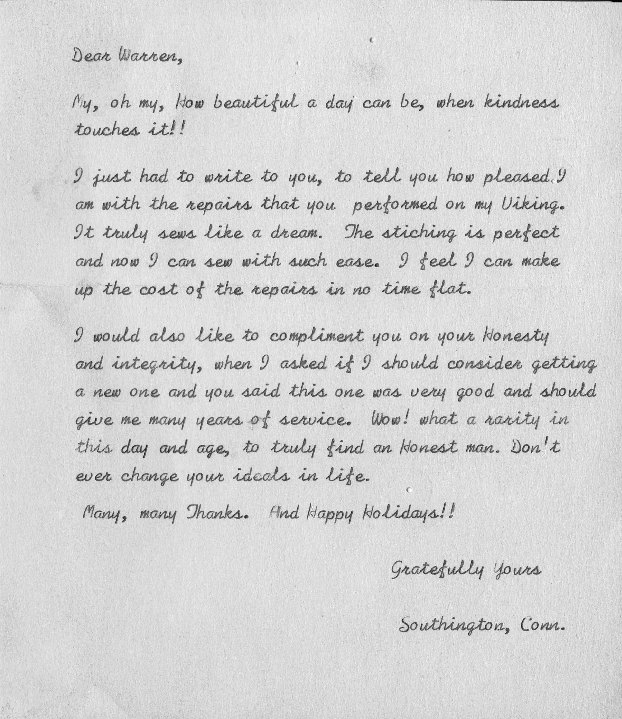 Dear Warren,
My, oh my, How beautiful a day can be, when kindness
touches it!!
I just had to write to you, to tell you how pleased I
am with the repairs that you performed on my Viking.
It truly sews like a dream. The stiching is perfect
and now I can sew with such ease. I feel I can make
up the cost of the repairs in no time flat.
I would also like to compliment you on your Honesty
and integrity, when I asked if I should consider getting
a new one and you said this one was very good and should
give me many years of service. Wow! what a rarity in
this day and age, to truly find an Honest man. Don't
ever change your ideals in life.
Many, many Thanks. And Happy Holidays!!
Gratefully Yours
Southington, Conn.